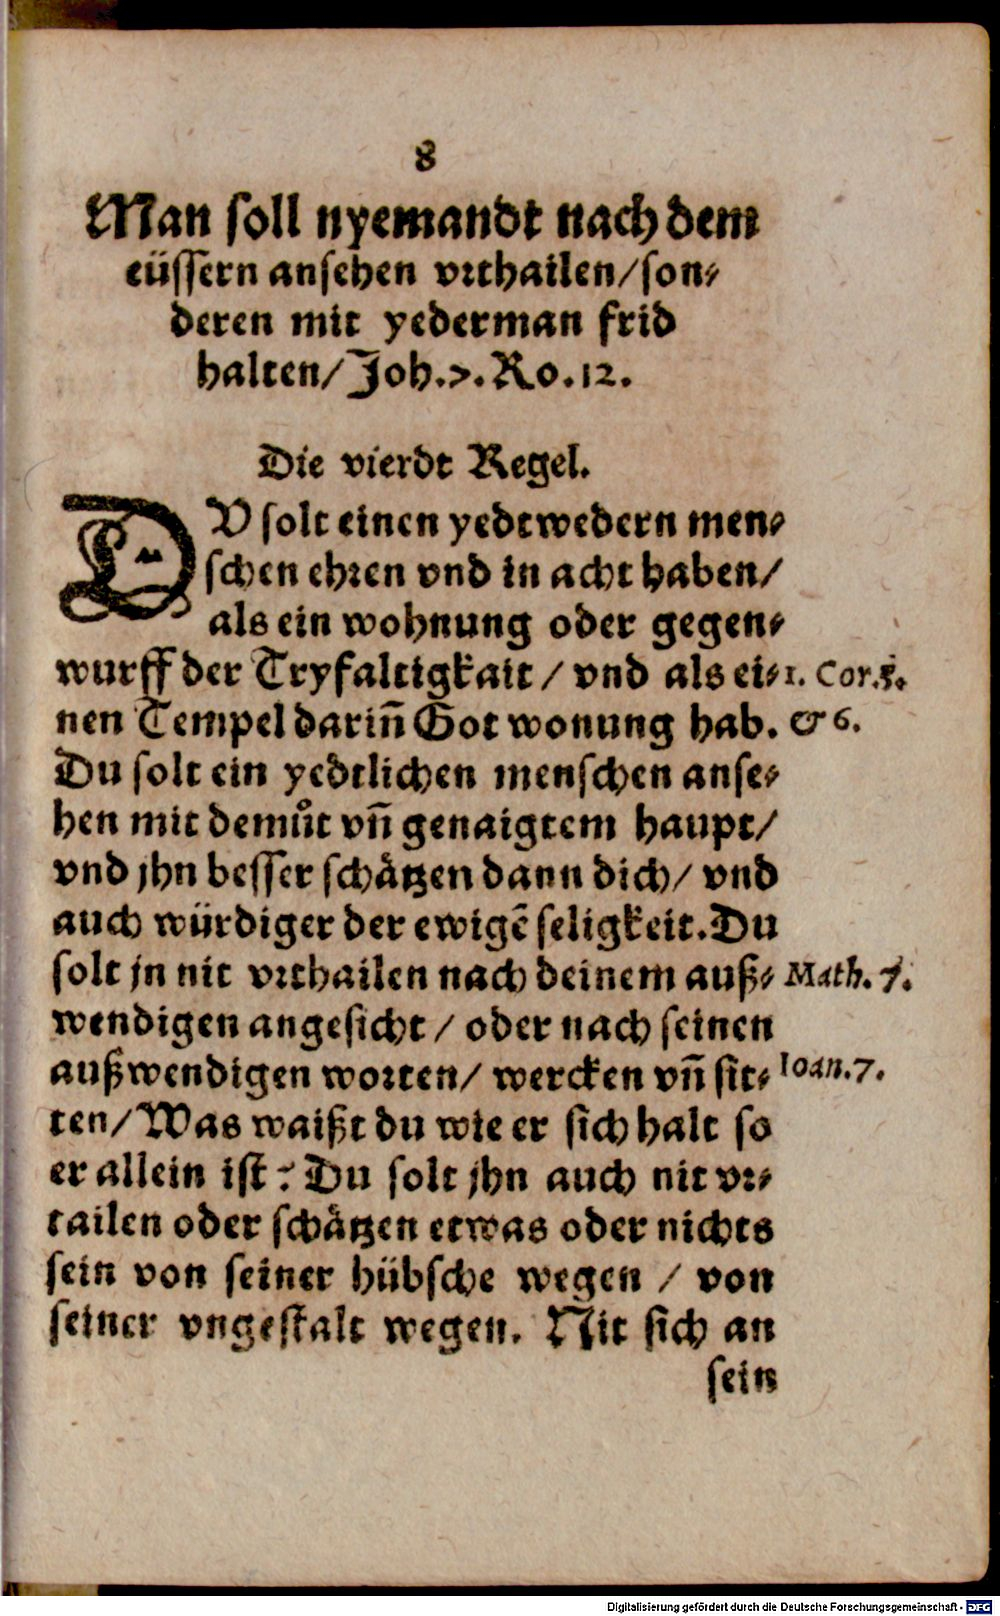 8
Man soll nyemandt nach dem
eüssern ansehen vrthailen/son⸗
deren mit yederman frid
halten/Joh.7.Ro.12.
Die vierdt Regel.
DV solt einen yedtwedern men⸗
schen ehren vnd in acht haben/
als ein wohnung oder gegen⸗
wurff der Tryfaltigkait / vnd als ei⸗ 1. Cor.3.
nen Tempel dariñ Got wonung hab. & 6.
Du solt ein yedtlichen menschen anse⸗
hen mit demůt vñ genaigtem haupt/
vnd jhn besser schätzen dann dich/ vnd
auch würdiger der ewigẽ seligkeit. Du
solt jn nit vrthailen nach deinem auß⸗ Math. 7.
wendigen angesicht / oder nach seinen
außwendigen worten/ wercken vñ sit⸗ Ioan.7.
ten/ Was waißt du wie er sich halt so
er allein ist? Du solt jhn auch nit vr⸗
tailen oder schätzen etwas oder nichts
sein von seiner hübsche wegen / von
seiner vngestalt wegen. Nit sich an
sein
Digitalisierung gefördert durch die Deutsche Forschungsgemeinschaft - DFG